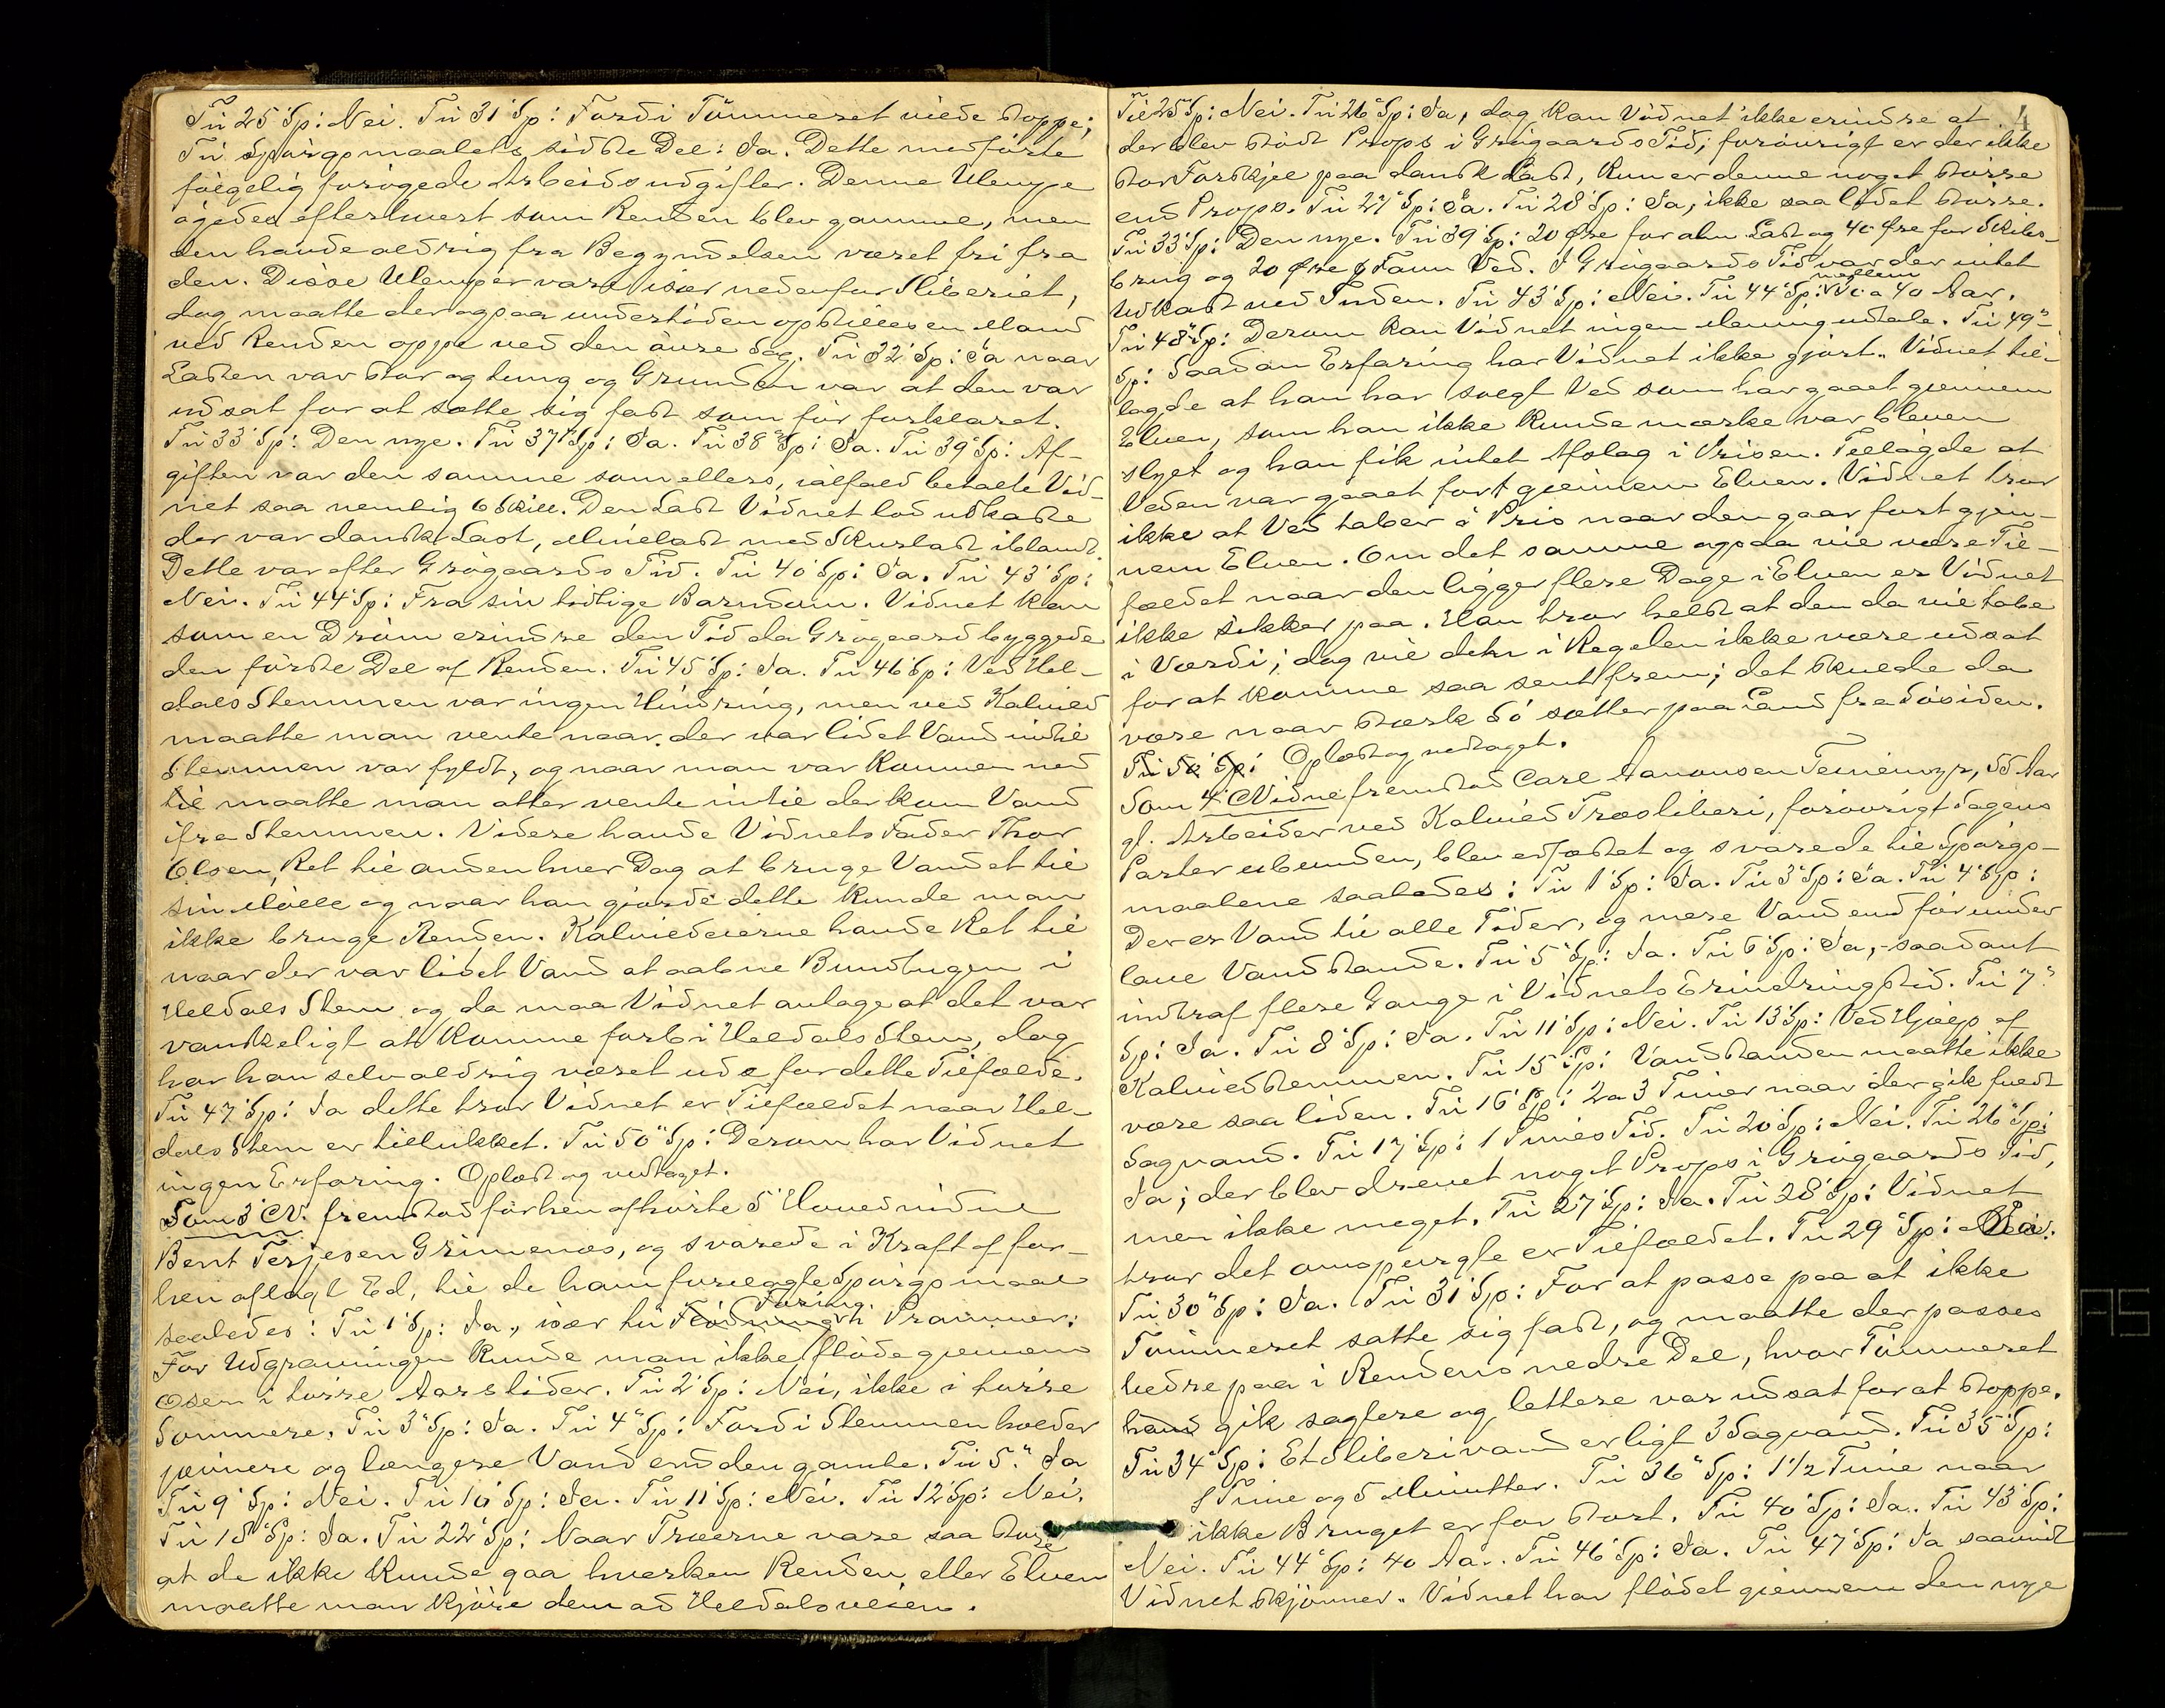 Til 25' Sp: Nei. Til 31' Sp: Fordi Tømmeret vilde stoppe;
Til Spørgsmaalets sidste Del: Ja. Dette medførte
følgelig forøgede Arbeidsudgifter. Denne Ulempe
øgedes efterhvert som Renden blev gammel, men
den havde aldrig fra Begyndelsen været fri fra
den. Disse Ulemper vare især nedenfor Sliberiet,
dog maatte der ogsaa undertiden opstilles en Mand
ved Renden oppe ved den øvre Sag. Til 32' Sp: Ja naar
Lasten var stor og tung og Grunden var at den var
udsat for at sætte sig fast som før forklaret.
Til 33' Sp: Den nye. Til 37' Sp: Ja. Til 38' Sp: Ja. Til 39' Sp: Af-
giften var den samme som ellers, ialfald betalte Vid-
net saa nemlig 6 Skill. Den Last Vidnet lod udkaste
der var dansk Last, Minelast med Skurlast iblandt.
Dette var efter Grøgaards Tid. Til 40' Sp: Ja. Til 43' Sp:
Nei. Til 44' Sp: Fra sin tidlige Barndom. Vidnet kan
som en Drøm erindre den Tid da Grøgaard byggede
den første Del af Renden. Til 45' Sp: Ja. Til 46' Sp: Ved Hel-
dals Stemmen var ingen Hindring, men ved Kalvild
maatte man vente naar der var lidet Vand indtil
Stemmen var fyldt, og naar man var kommen ned
til maatte man atter vente indtil der kom Vand
ifra Stemmen. Videre havde Vidnets Fader Thor
Olsen, Ret til anden hver Dag at bruge Vandet til
sin Mølle og naar han gjorde dette kunde man
ikke bruge Renden. Kalvildeierne havde Ret til
naar der var lidet Vand at aabne Bundlugen i
Heldals Stem og da maa Vidnet antage at det var
vanskeligt at komme forbi Heldals Stem, dog
har han selv aldrig været ude for dette Tilfælde.
Til 47' Sp: Ja dette tror Vidnet er Tilfældet naar Hel-
dals Stem er tillukket. Til 50" Sp: Derom har Vidnet
ingen Erfaring. Oplæst og vedtaget.
Som 3' CV. fremstod førhen afhørte 5' Hovedvidne
Bent Terjesen Grimenæs, og svarede i Kraft af for-
hen aflagt Ed, til de ham forelagte Spørgsmaal
saaledes: Til 1' Sp: Ja, især til Flødning Føring Prammer.
Før Udgravningen kunde man ikke fløde giennem
Osen i tørre Aarstider. Til 2' Sp: Nei, ikke i tørre
Sommere. Til 3" Sp: Ja. Til 4" Sp: Fordi Stemmen holder
jævnere og længere Vand end den gamle. Til 5." Ja
Til 9' Sp: Nei. Til 10' Sp: Ja. Til 11' Sp: Nei. Til 12' Sp: Nei.
Til 18' Sp: Ja. Til 22' Sp: Naar Træerne vare saa store
at de ikke kunde gaa hverken Renden eller Elven
maatte man kjøre dem ad Heldalsveien.
4
Til 25' Sp: Nei. Til 26" Sp: Ja, dog kan Vidnet ikke erindre at
der blev stødt Props i Grøgaards Tid; forøvrigt er der ikke
stor Forskjel paa dansk Last, kun er denne noget større
end Props. Til 27" Sp: Ja. Til 28' Sp: Ja, ikke saa lidet større.
Til 33' Sp: Den nye. Til 39' Sp: 20 Øre for alm Last og 40 Øre for Skibs-
brug og 20 Øre p Favn Ved. I Grøgaards Tid var der intet
Udkast ved Inden. Til 43' Sp: Nei. Til 44" Sp: mellem 40 Aar.
Til 48" Sp: Derom kan Vidnet ingen Mening udtale. Til 49"
Sp: Saadan Erfaring har Vidnet ikke gjort. Vidnet til-
lagde at han har solgt Ved som har gaaet giennem
Elven, som han ikke kunde mærke var bleven
slyet og han fik intet Afslag i Prisen. Tillagde at
Veden var gaaet fort giennem Elven. Vidnet tror
ikke at Ved taber i Pris naar den gaar fort gjen-
nem Elven. Om det samme ogsaa vil være Til-
fældet naar den ligger flere Dage i Elven er Vidnet
ikke sikker paa. Han tror helst at den da vil tabe
i Værdi; dog vil dette i Regelen ikke være udsat
for at komme saa sent frem; det skulde da
være naar stærk Sø sætter paa Land fra Søsiden.
Til 50' Sp: Oplæst og vedtaget.
Som 4' CVidne fremstod Carl Aanonsen Temmernyr, 55 Aar
gl. Arbeider ved Kalvild Træsliberi, forøvrigt Sagens
Parter ubunden, blev edfæstet og svarede til Spørgs-
maalene saaledes: Til 1' Sp: Ja. Til 3" Sp: Ja. Til 4' Sp:
Der er Vand til alle Tider, og mere Vand end før under
lave Vandstande. Til 5" Sp: Ja. Til 6' Sp: Ja,- saadant
indtraf flere Gange i Vidnets Erindringstid. Til 7."
Sp: Ja. Til 8" Sp: Ja. Til 11' Sp: Nei. Til 13' Sp: Ved Hjælp af
Kalvildstemmen. Til 15' Sp: Vandstanden maatte ikke
være saa liden. Til 16' Sp: 2 a 3 Timer naar der gik fuldt
Sagvand. Til 17' Sp: 1 Times Tid. Til 20' Sp: Nei. Til 26' Sp:
Ja; der blev drevet noget Props i Grøgaards Tid,
men ikke meget. Til 27' Sp: Ja. Til 28' Sp: Vidnet
tror det omspurgte er Tilfældet. Til 29' Sp: Ja.
Til 30" Sp: Ja. Til 31' Sp: For at passe paa at ikke
Tømmeret satte sig fast, og maatte der passes
bedre paa i Rendens nedre Del, hvor Tømmeret
hand gik sagtere og lettere var udsat for at stoppe.
Til 34" Sp: Et Sliberivand er ligt 3 Sagvand. Til 35' Sp:
1 Time og 5 Minutter. Til 36" Sp: 1 1/2 Time naar
ikke Bruget er for stort. Til 40' Sp: Ja. Til 43' Sp:
Nei. Til 44" Sp: 40 Aar. Til 46' Sp: Ja. Til 47' Sp: Ja saavidt
Vidnet skjønner. Vidnet har flødet giennem den nye